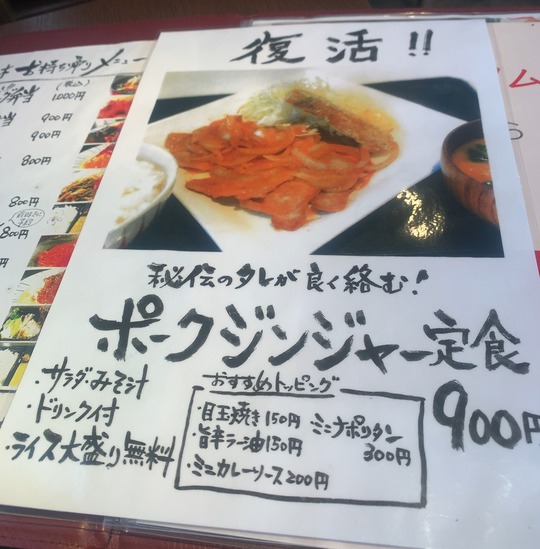 復活!!
秘伝のタレが良く絡む!
ポークジンジャー定食
900円
・サラダ・みそ汁
・ドリンク付
・ライス大盛り無料
おすすめトッピング
・目玉焼き150円
・旨辛ラー油150円
・ミニカレーソース200円
ミニナポリタン
300円
お持ち帰りメニュー
(税込)
弁当 1,000円
900円
900円
800円
800円
800円